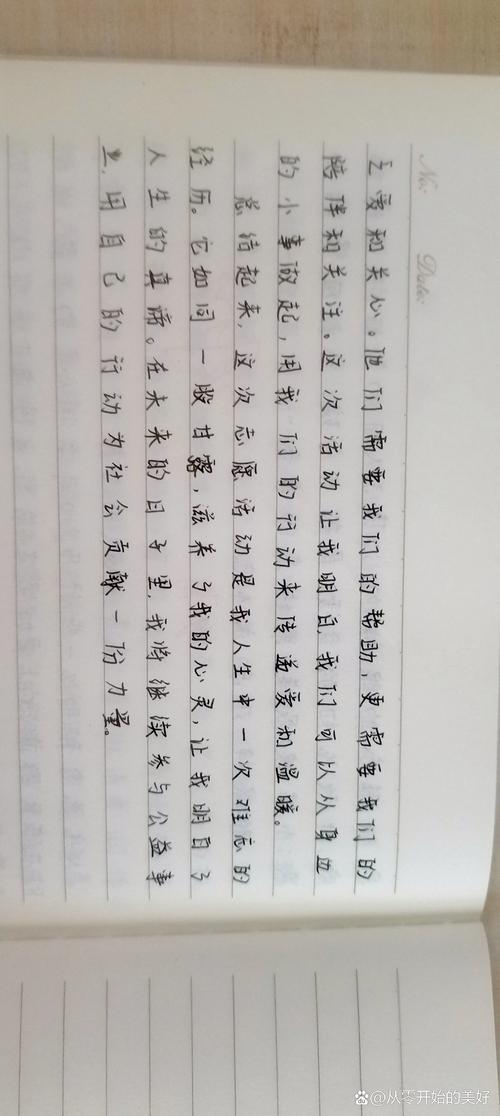 No:
Date:
乏爱和关心。他们需要我们的帮助,更需要我们的
陪伴和关注。这次活动让我明白,我们可以从身边
的小事做起,用我们的行动来传递爱和温暖。
总结起来,这次志愿活动是我人生中一次难忘的
经历。它如同一股甘露,滋养了我的心灵,让我明白了
人生的真谛。在未来的日子里,我将继续参与公益事
业,用自己的行动为社会贡献一份力量。
@从零开始的美好